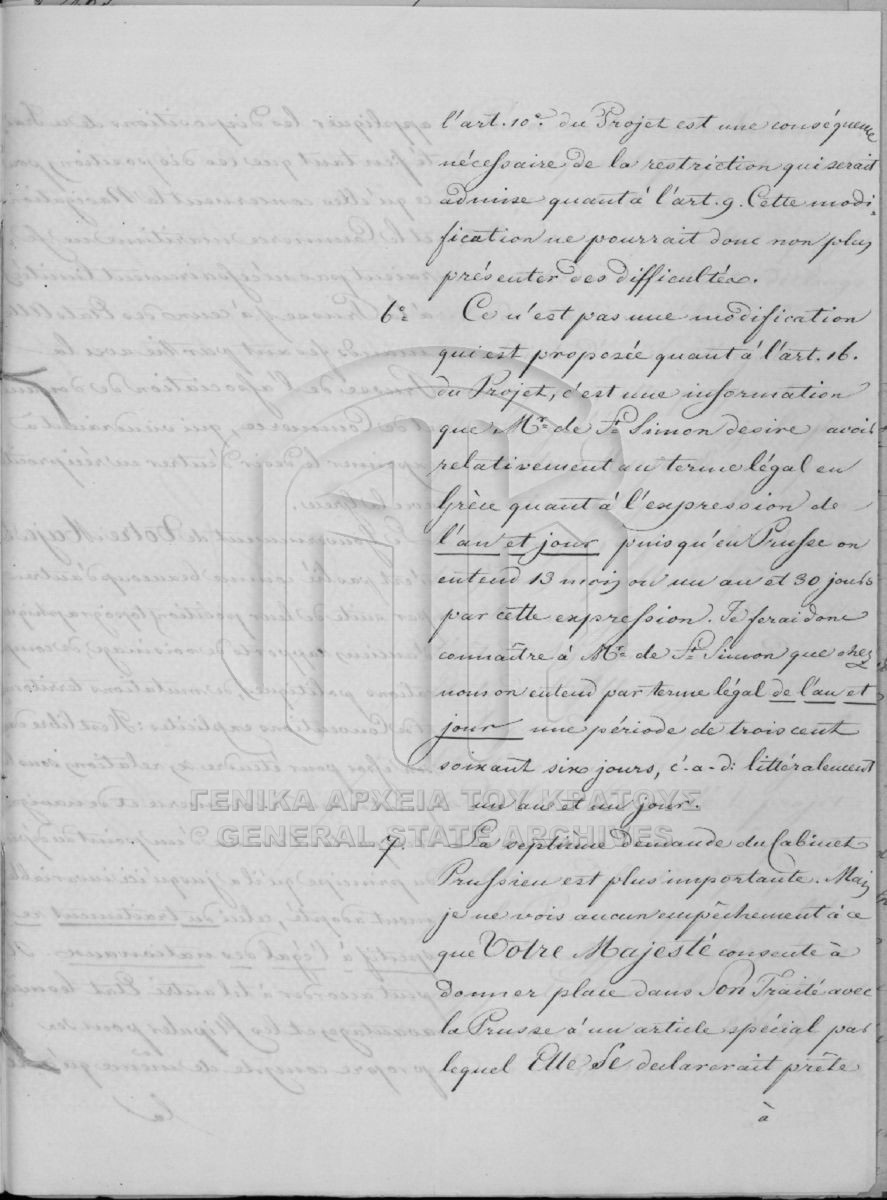 l'art. 10e. du Projet est une conséquence
nécessaire de la restriction qui serait
admise quant à l'art. 9. Cette modi-
fication ne pourrait donc non plus
présenter des difficultés.
6o. Ce n'est pas une modification
qui est proposée quant à l'art. 16.
du Projet, c'est une information
que Mr. de St. Simon desire avoir
relativement au terme légal en
Grèce quant à l'expression de
l'an et jour puisqu'en Prusse on
entend 13 mois ou un an et 30 jours
par cette expression. Je ferai donc
connaître à Mr. de St. Simon que chez
nous on entend par terme légal de l'an et
jour une période de trois cent
soixant six jours, c.-a-d: littéralement
un an et un jour.
ΓΕΝΙΚΑ ΑΡΧΕΙΑ ΤΟΥ ΚΡΑΤΟΥΣ
GENERAL STATE ARCHIVES
7. La septieme demande du Cabinet
Prussien est plus importante. Mais
je ne vois aucun empêchement à ce
que Votre Majesté consente à
donner place dans Son Traité avec
la Prusse à un article spécial par
lequel Elle Se declarerait prête
à